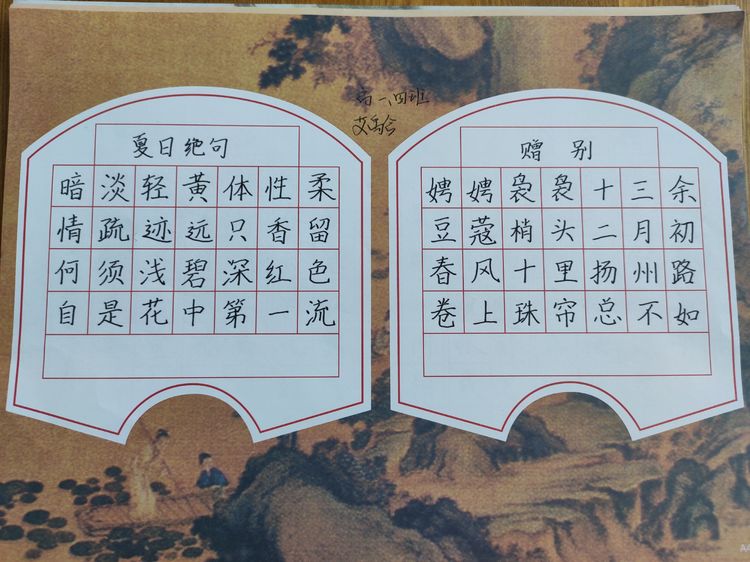 高一四班
夏日绝句
暗淡轻黄体性柔
情疏迹远只香留
何须浅碧深红色
自是花中第一流
赠别
娉娉袅袅十三余
豆蔻梢头二月初
春风十里扬州路
卷上珠帘总不如